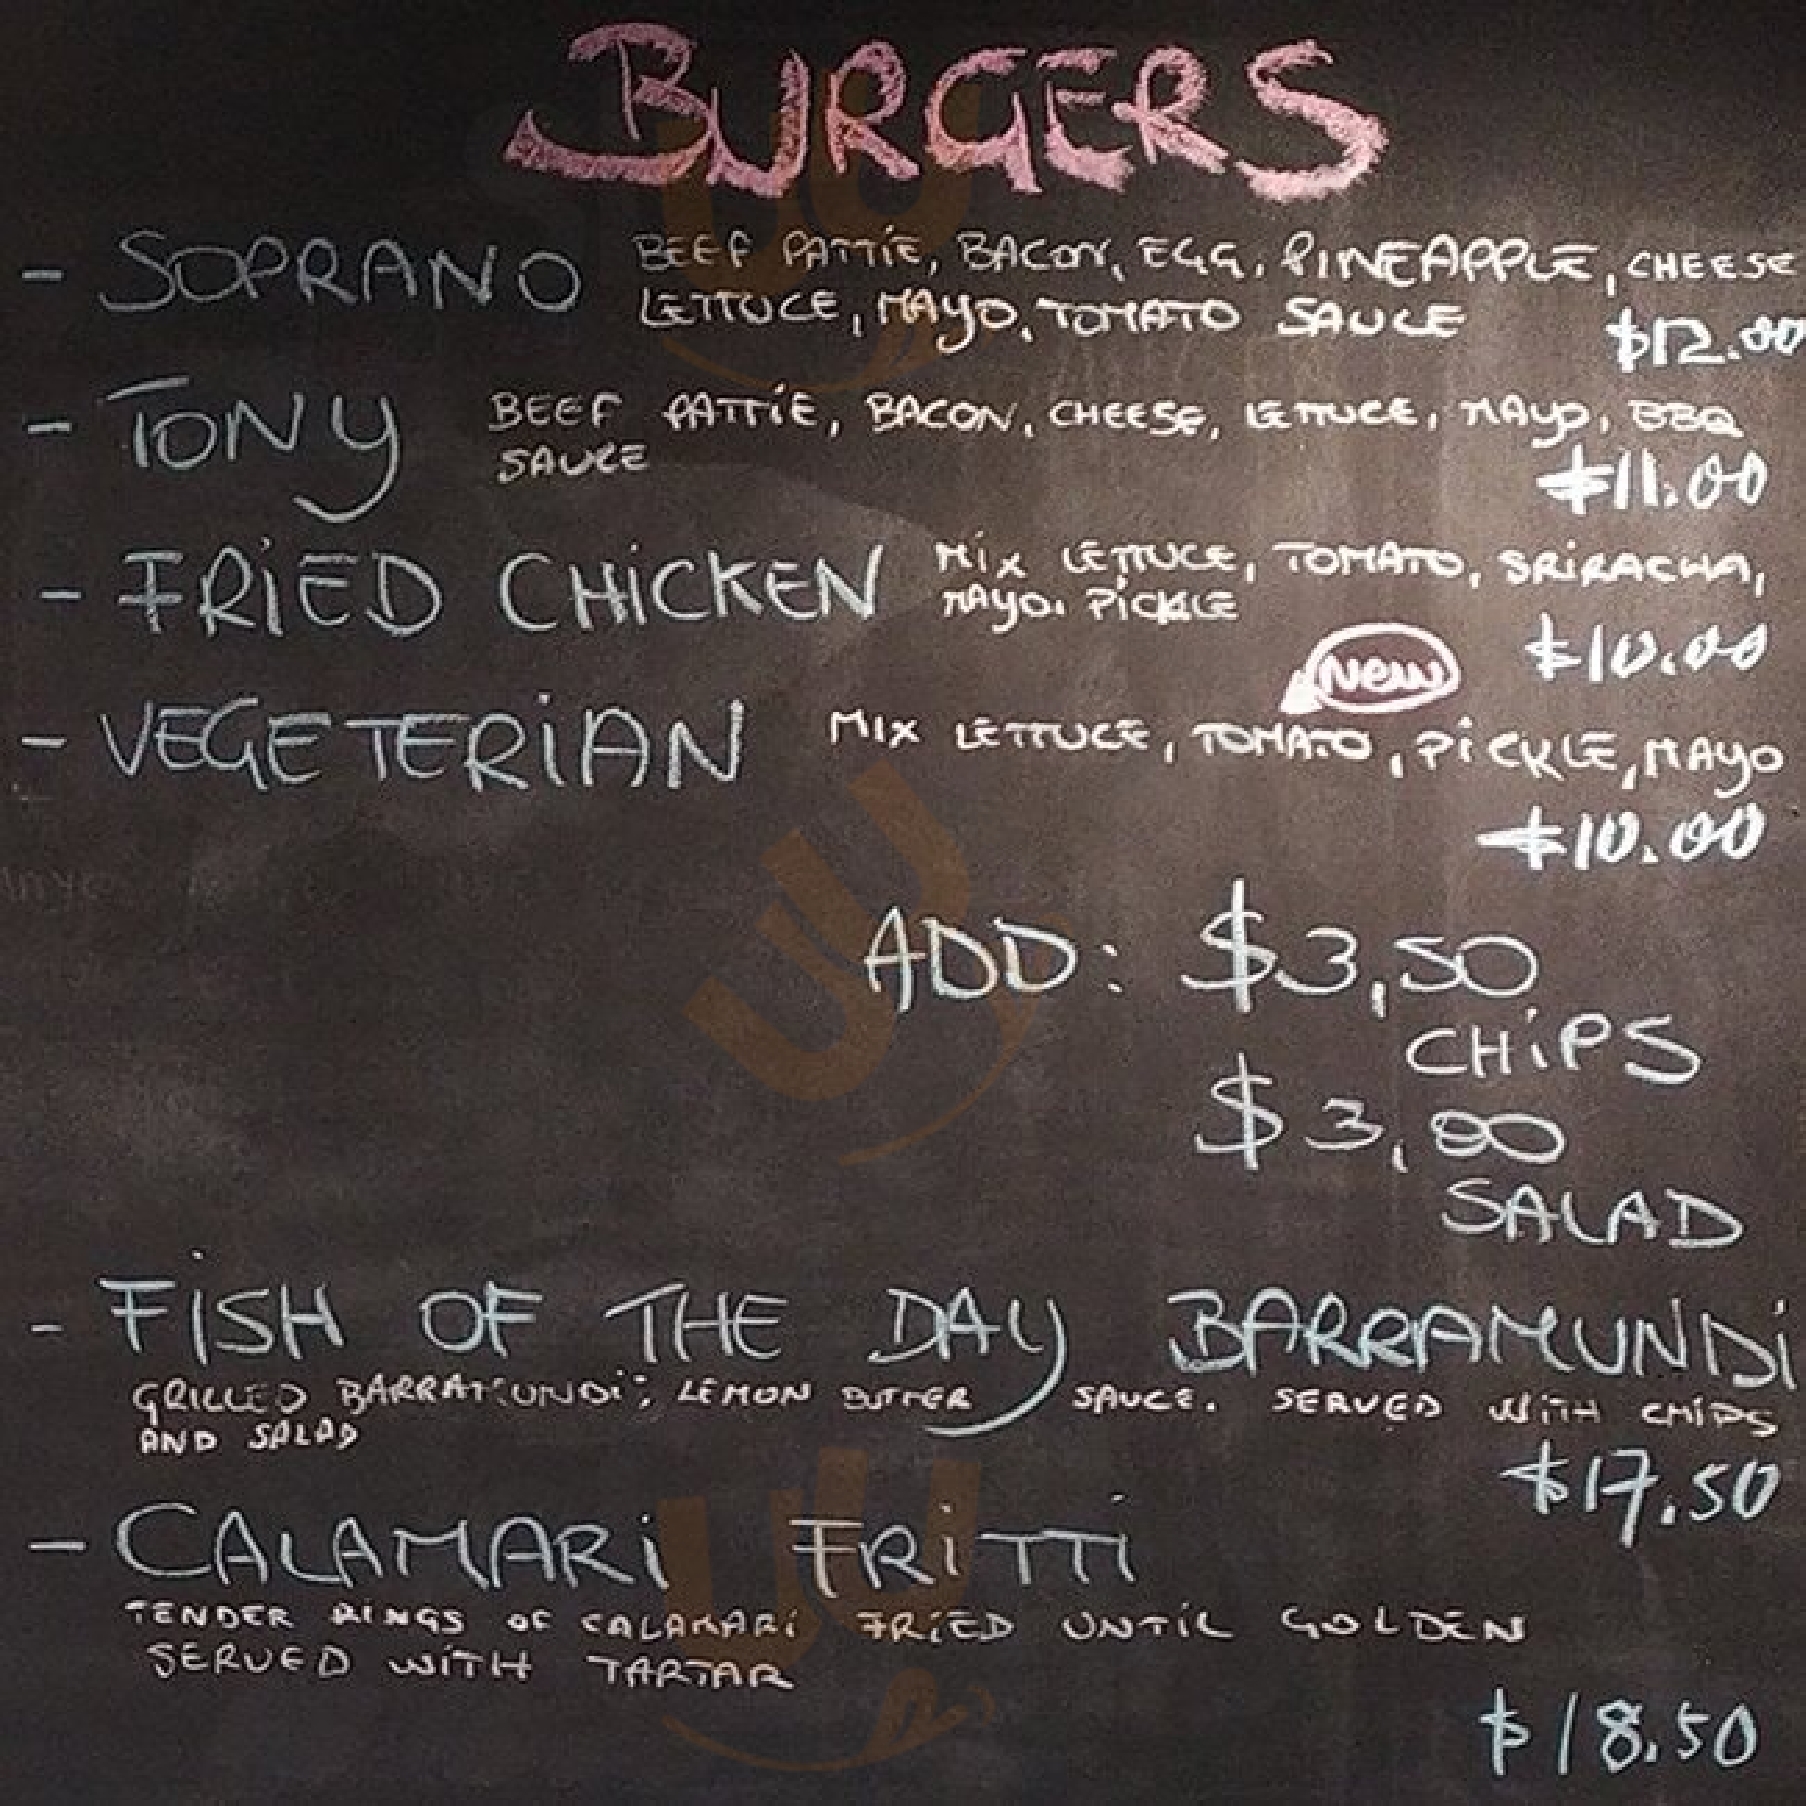 BURGERS
- SOPRANO BEEF PATTIE, BACON, EGG, PINEAPPLE, CHEESE
LETTUCE, MAYO, TOMATO SAUCE $12.00
- TONY BEEF PATTIE, BACON, CHEESE, LETTUCE, MAYO, BBQ
SAUCE $11.00
- FRIED CHICKEN MIX LETTUCE, TOMATO, SRIRACHA,
MAYO. PICKLE $10.00
NEW
- VEGETERIAN MIX LETTUCE, TOMATO, PICKLE, MAYO
$10.00
ADD: $3,50
CHIPS
$3,00
SALAD
- FISH OF THE DAY BARRAMUNDI
GRILLED BARRAMUNDI, LEMON BUTTER SAUCE. SERVED WITH CHIPS
AND SALAD
$17.50
- CALAMARI FRITTI
TENDER RINGS OF CALAMARI FRIED UNTIL GOLDEN
SERVED WITH TARTAR
$18.50